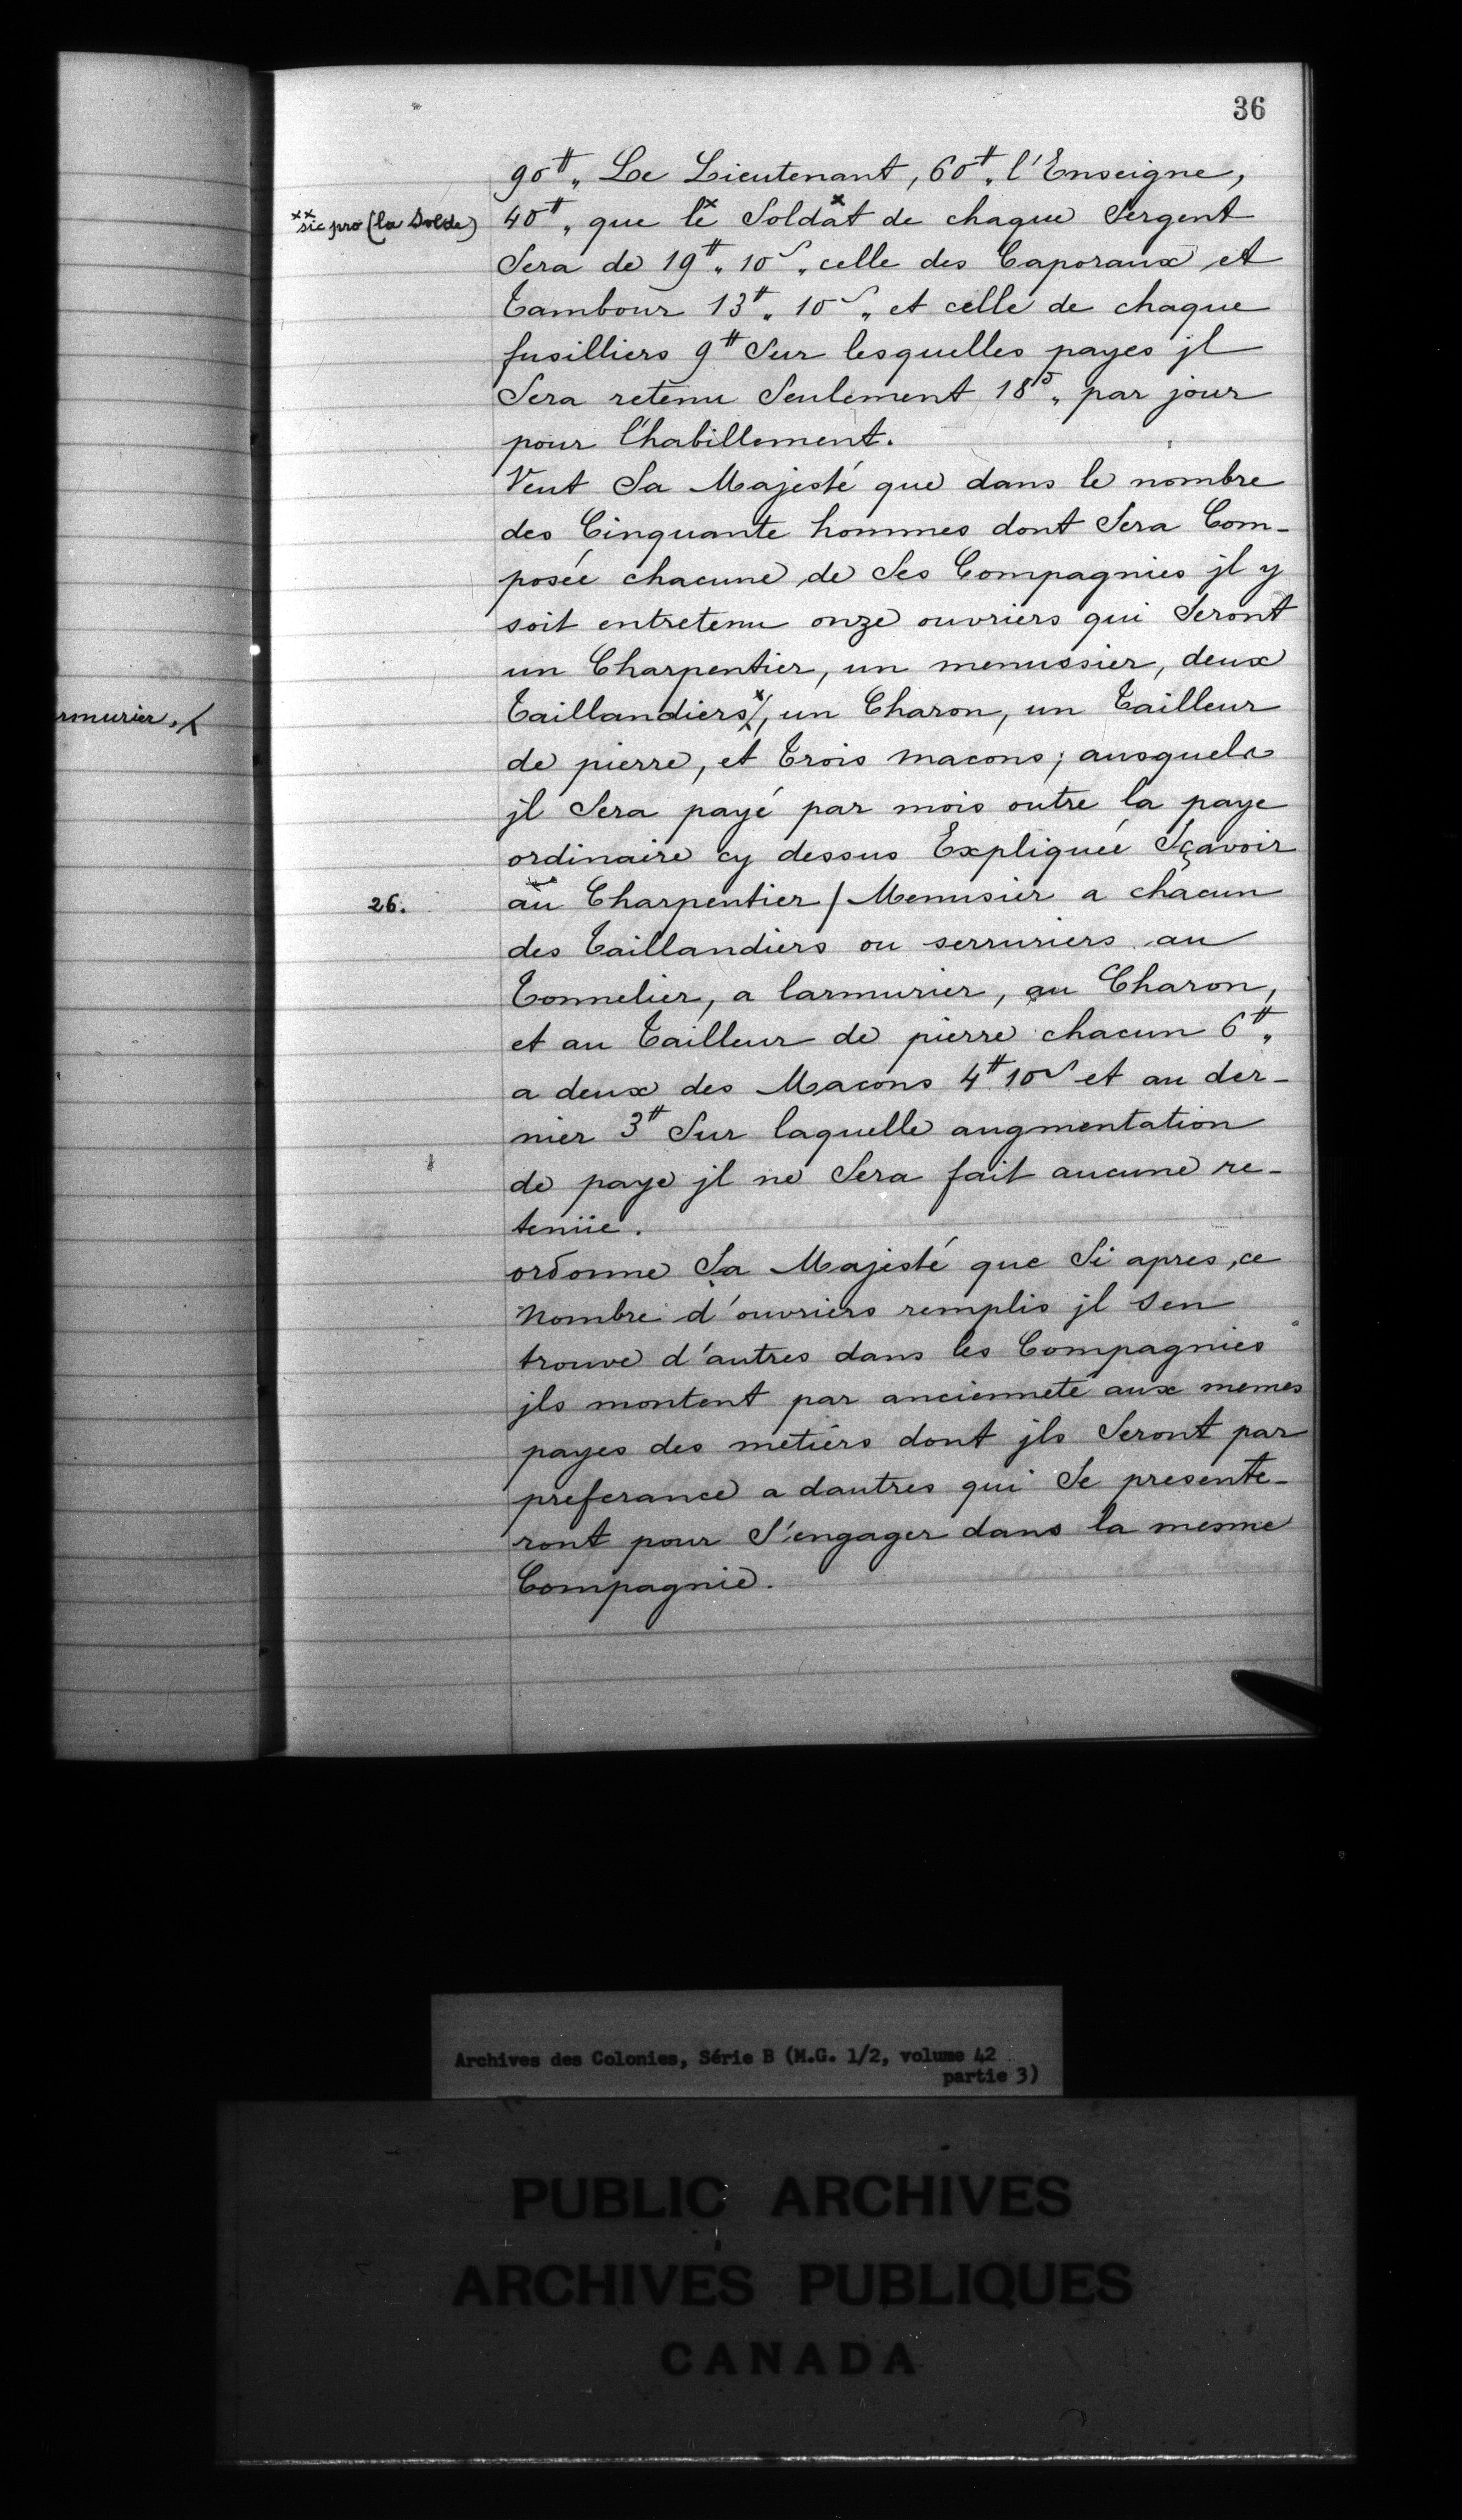 36
90ᵗᵗ„ Le Lieutenant, 60ᵗᵗ„ l'Enseigne,
xx sic pro (la Solde)
40ᵗᵗ„ que leˣ Soldatˣ de chaque Sergent
Sera de 19ᵗᵗ„ 10ˢ„ celle des Caporaux et
Tambour 13ᵗᵗ„ 10ˢ„ et celle de chaque
fusilliers 9ᵗᵗ Sur lesquelles payes jl
Sera retenu Seulement 18ᵈ„ par jour
pour l'habillement.
Veut Sa Majesté que dans le nombre
des Cinquante hommes dont Sera Com-
posée chacune de Ses Compagnies jl y
soit entretenu onze ouvriers qui Seront
un Charpentier, un menussier, deux
rmurier, x
Taillandiersˣ/, un Charon, un Tailleur
de pierre, et Trois macons; ausquels
jl Sera payé par mois outre la paye
ordinaire cy dessus Expliquée Sçavoir
26.
au Charpentier / Menusier a chacun
des Taillandiers ou serruriers au
Tonnelier, a larmurier, au Charon,
et au Tailleur de pierre chacun 6ᵗᵗ„
a deux des Macons 4ᵗᵗ 10ˢ et au der-
nier 3ᵗᵗ Sur laquelle augmentation
de paye jl ne Sera fait aucune re-
tenüe.
ordonne Sa Majesté que Si apres, ce
Nombre d'ouvriers remplis jl sen
trouve d'autres dans les Compagnies
jls montent par ancienneté aux memes
payes des metiers dont jls Seront par
preferance a dautres qui Se presente-
ront pour S'engager dans la mesme
Compagnie.
Archives des Colonies, Série B (M.G. 1/2, volume 42
partie 3)
PUBLIC ARCHIVES
ARCHIVES PUBLIQUES
CANADA